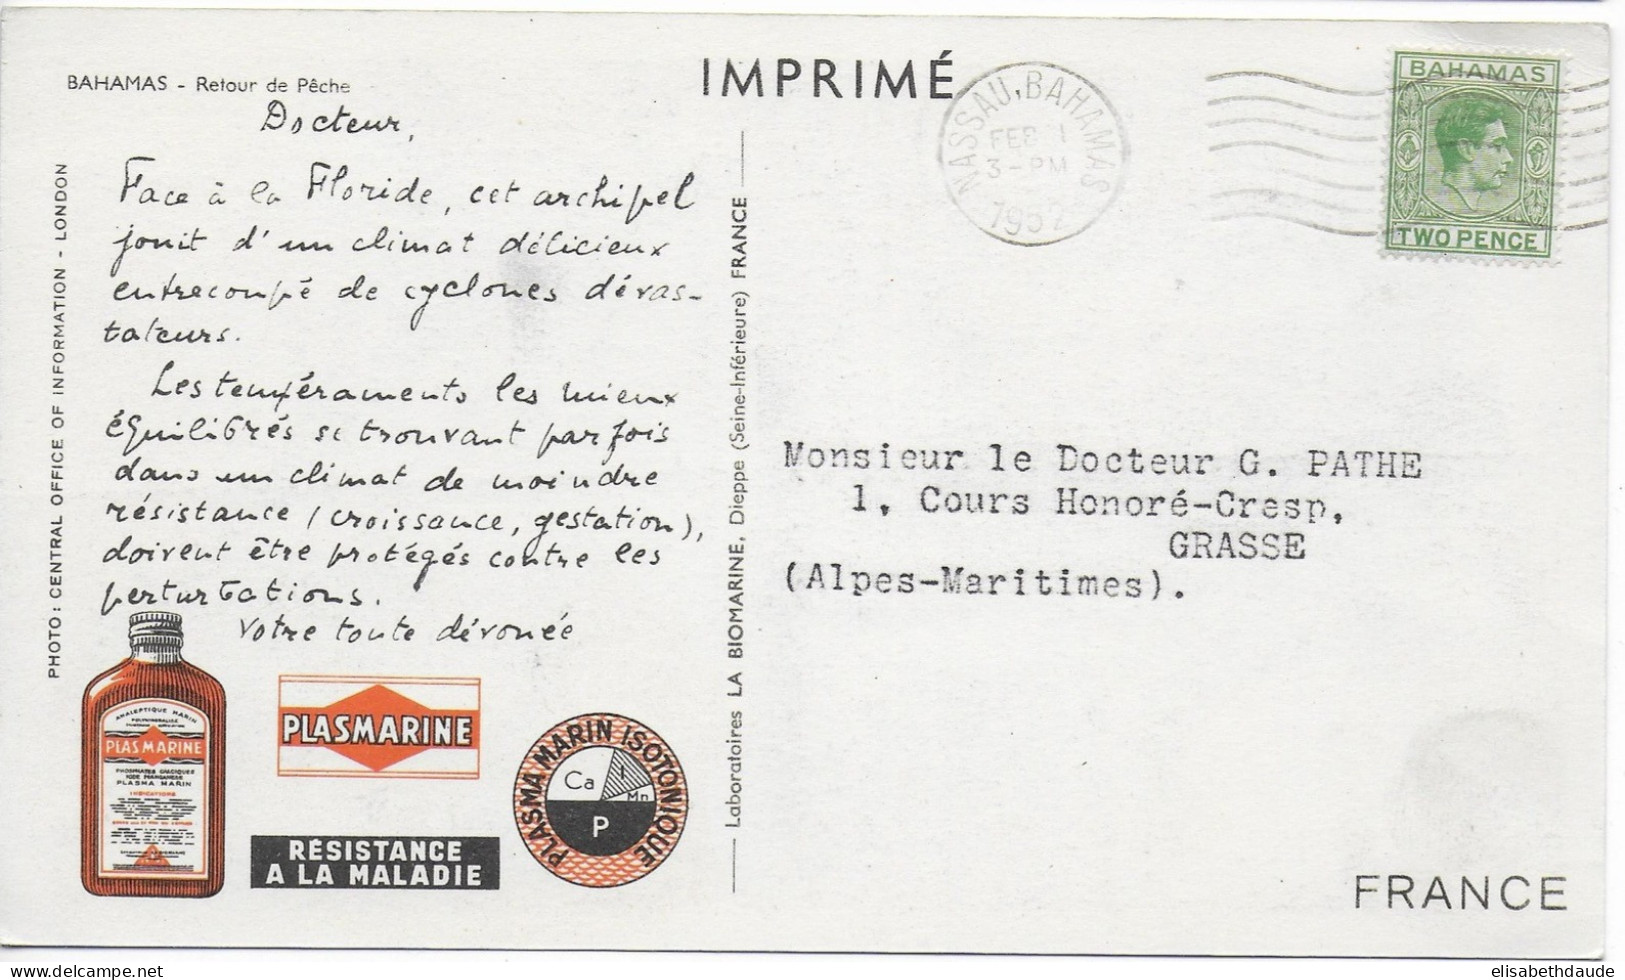 BAHAMAS - Retour de Pêche
Docteur,
Face à la Floride, cet archipel
jouit d'un climat délicieux
entrecoupé de cyclones dévas-
tateurs.
Les tempéraments les mieux
équilibrés se trouvant parfois
dans un climat de moindre
résistance (croissance, gestation),
doivent être protégés contre les
perturbations.
Votre toute dévouée
PHOTO: CENTRAL OFFICE OF INFORMATION - LONDON
ANALEPTIQUE MARIN
PLASMARINE
PHOSPHATES GLACIQUES
IODE MANGANESE
PLASMA MARIN
INDICATIONS
PLASMARINE
RÉSISTANCE
A LA MALADIE
PLASMA MARIN ISOTONIQUE
Ca I Mn
P
Laboratoires LA BIOMARINE, Dieppe (Seine-Inférieure) FRANCE
IMPRIMÉ
NASSAU, BAHAMAS
FEB 1
3-PM
1952
BAHAMAS
TWO PENCE
Monsieur le Docteur G. PATHE
1, Cours Honoré-Cresp,
GRASSE
(Alpes-Maritimes).
FRANCE
elisabethdaude